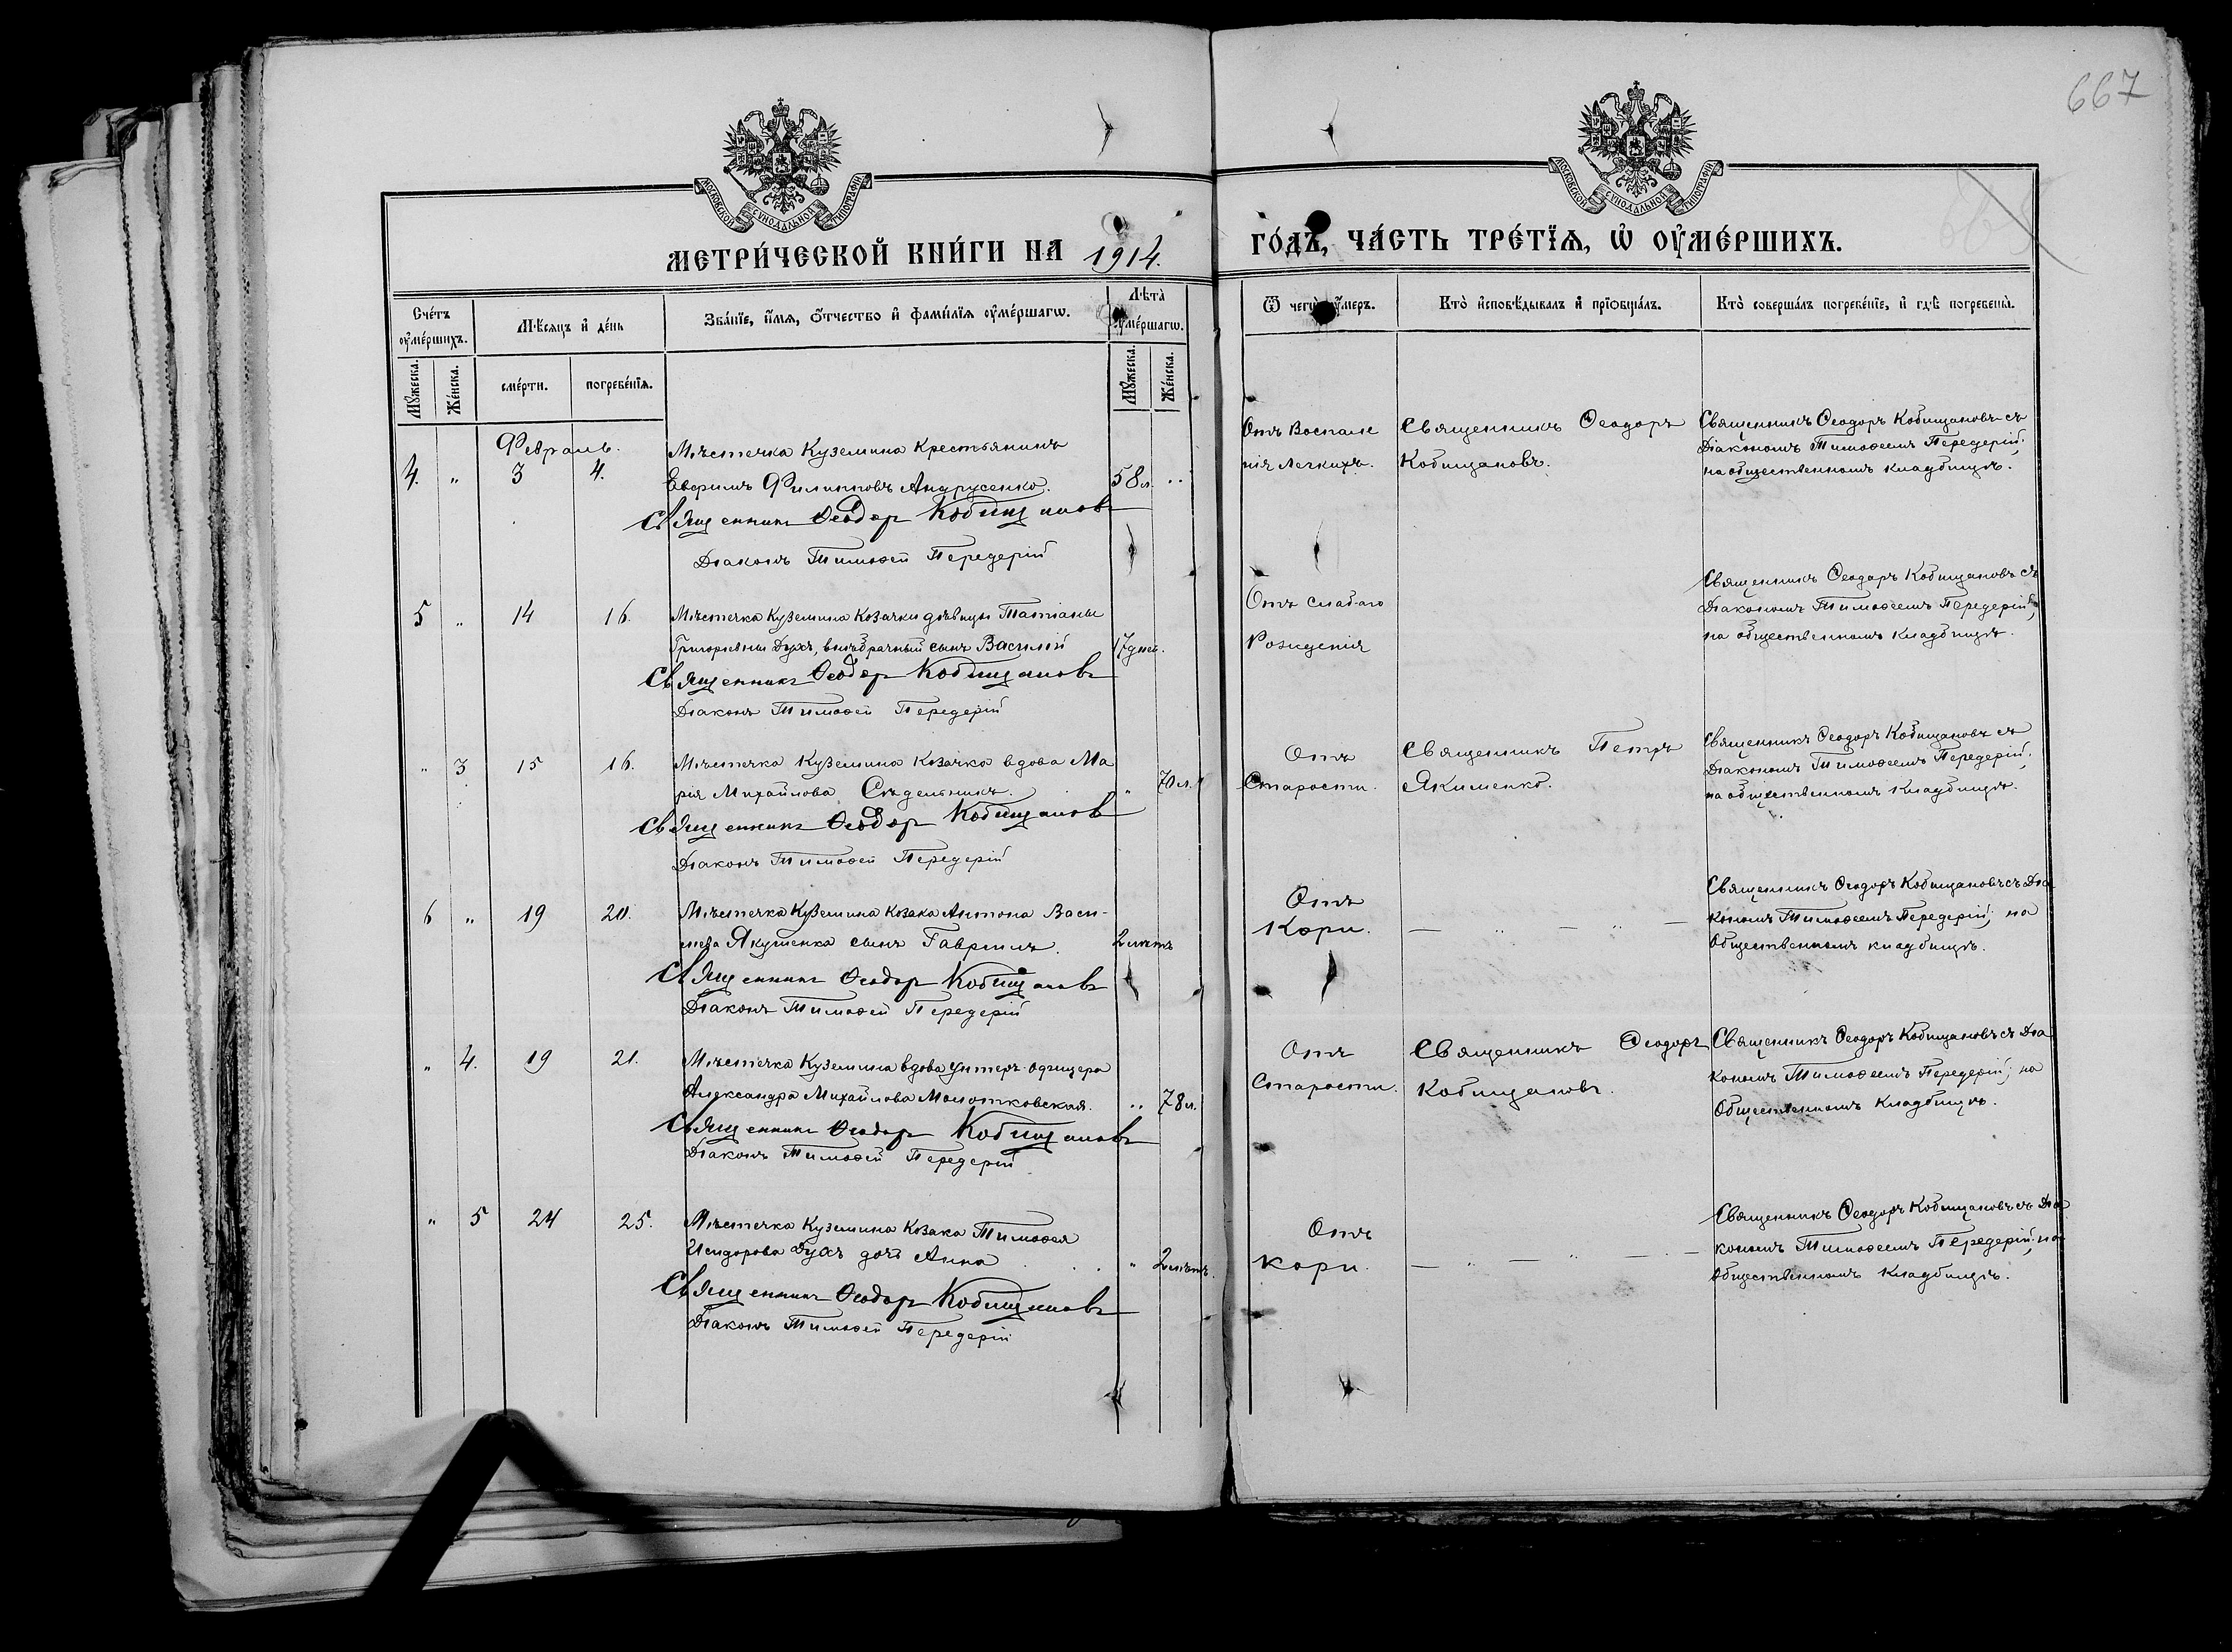 667
МОСКОВСКОЙ СѴНОДАЛЬНОЙ ТИПОГРАФІИ
МОСКОВСКОЙ СѴНОДАЛЬНОЙ ТИПОГРАФІИ
МЕТРИ́ЧЕСКОЙ КНИ́ГИ НА 1914. ГО́ДЪ, ЧА́СТЬ ТРЕ́ТІЯ, Ѡ҆ ОУ҆МЕ́РШИХЪ.
Сче́тъ оу҆ме́ршихъ.
Мꙋ́жеска.
Же́нска.
Мѣ́сяцъ и҆ де́нь
сме́рти.
погребе́нїѧ.
Зва́нїе, и҆́мѧ, ѻ҆́тчество и҆ фами́лїѧ оу҆ме́ршагѡ.
Лѣ́та оу҆ме́ршагѡ.
Мꙋ́жеска.
Же́нска.
Ѿ чегѡ̀ оу҆́меръ.
Кто̀ и҆сповѣ́дывалъ и҆ прїѻбща́лъ.
Кто̀ соверша́лъ погребе́нїе, и҆ гдѣ̀ погребены̀.
Февраль.
4. " 3 4.
Мѣстечка Куземина Крестьянинъ
Евфимъ Филипповъ Андрусенко.
58 л. "
Священникъ Ѳеодоръ Кобищановъ
Діаконъ Тимоѳей Передерій
Отъ Воспале
нія Легкихъ.
Священникъ Ѳеодоръ
Кобищановъ.
Священникъ Ѳеодоръ Кобищановъ съ
Діакономъ Тимоѳеемъ Передерій;
на общественномъ кладбищѣ.
5 " 14 16.
Мѣстечка Куземина Козачки дѣвицы Татіаны
Григорьевны Духъ, внѣбрачный сынъ Василій
17 дней.
Священникъ Ѳеодоръ Кобищановъ
Діаконъ Тимоѳей Передерій
Отъ слабаго
Рожденія
Священникъ Ѳеодоръ Кобищановъ съ
Діакономъ Тимоѳеемъ Передерій;
на общественномъ кладбищѣ.
" 3 15 16.
Мѣстечка Куземина Козачка вдова Ма
рія Михайлова Сѣдельникъ.
" 70 л.
Священникъ Ѳеодоръ Кобищановъ
Діаконъ Тимоѳей Передерій
Отъ
Старости.
Священникъ Петръ
Якименко.
Священникъ Ѳеодоръ Кобищановъ съ
Діакономъ Тимоѳеемъ Передерій;
на общественномъ кладбищѣ.
6 " 19 20.
Мѣстечка Куземина Козака Антона Васи-
лева Якушенка сынъ Гавріилъ.
2 лѣтъ
Священникъ Ѳеодоръ Кобищановъ
Діаконъ Тимоѳей Передерій
Отъ
Кори.
— " — " —
Священникъ Ѳеодоръ Кобищановъ съ Діа
кономъ Тимоѳеемъ Передерій; на
Общественномъ кладбищѣ.
" 4. 19 21.
Мѣстечка Куземина вдова унтеръ-офицера
Александра Михайлова Молотковская.
" 78 л.
Священникъ Ѳеодоръ Кобищановъ
Діаконъ Тимоѳей Передерій
Отъ
Старости.
Священникъ Ѳеодоръ
Кобищановъ.
Священникъ Ѳеодоръ Кобищановъ съ Діа
кономъ Тимоѳеемъ Передерій; на
Общественномъ Кладбищѣ.
" 5 24 25.
Мѣстечка Куземина Козака Тимоѳея
Исидорова Духъ дочь Анна
" 2 лѣтъ.
Священникъ Ѳеодоръ Кобищановъ
Діаконъ Тимоѳей Передерій
Отъ
Кори.
— " — " — —
Священникъ Ѳеодоръ Кобищановъ съ Діа
кономъ Тимоѳеемъ Передерій; на
Общественномъ Кладбищѣ.